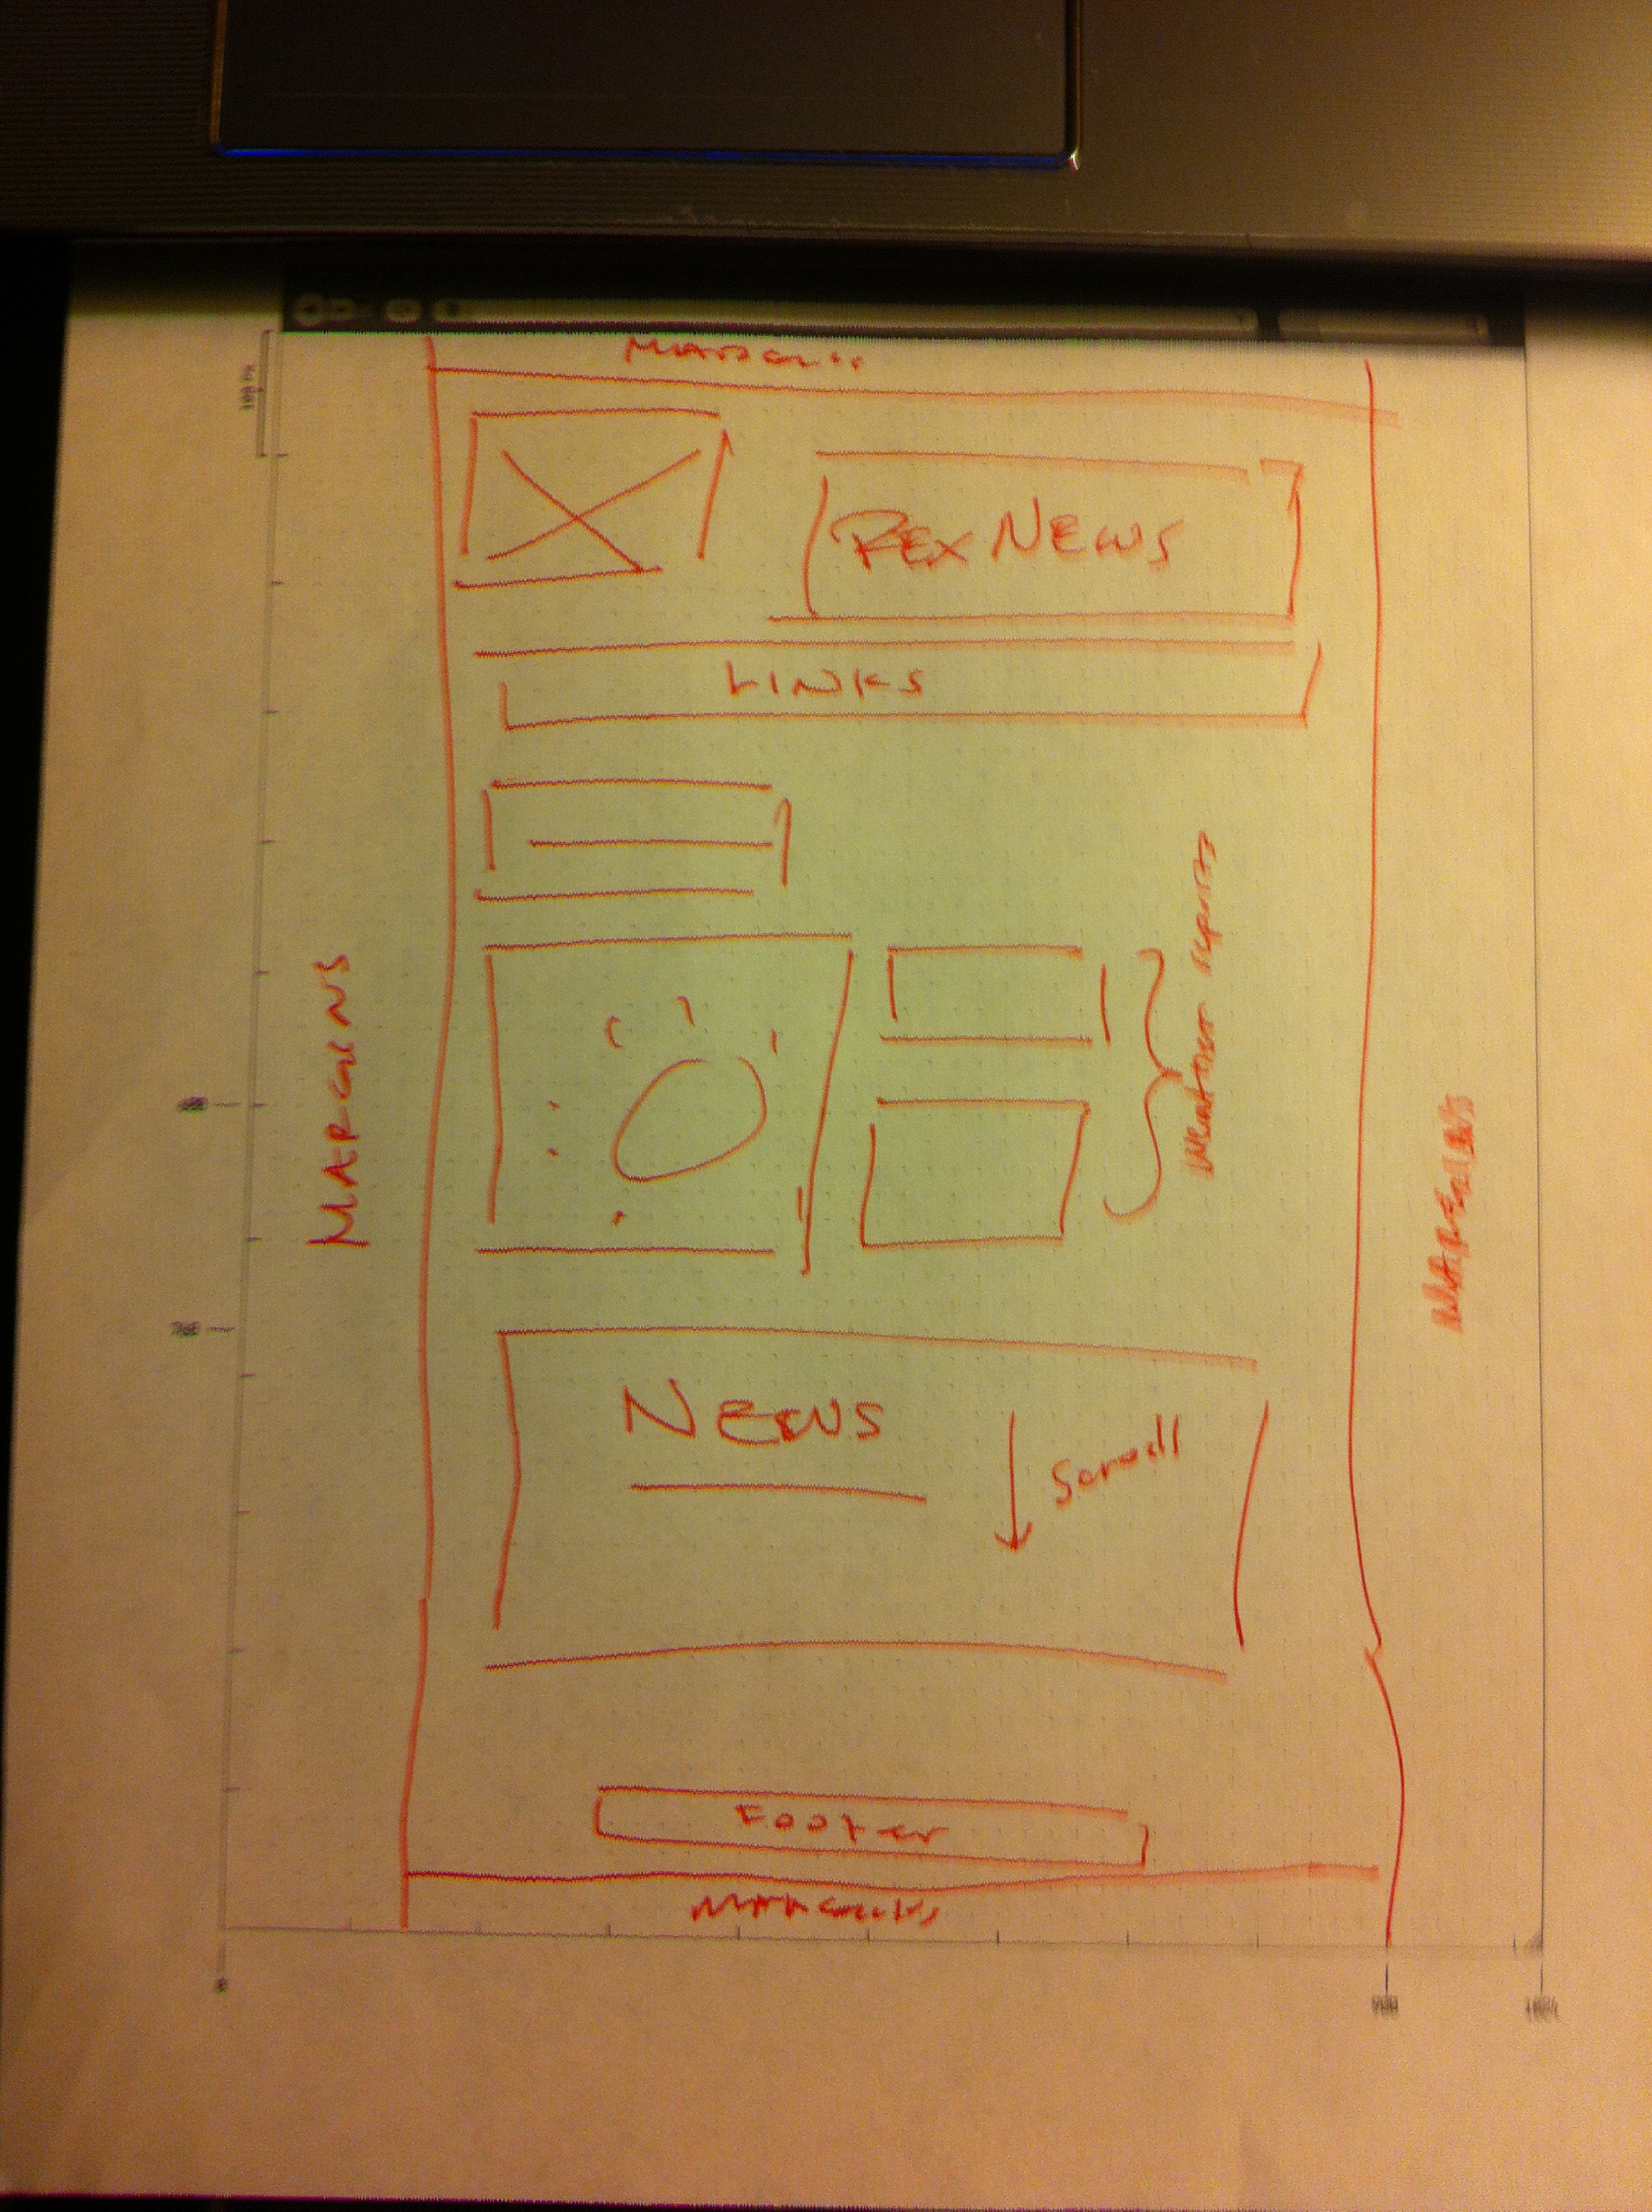 MARGIN
REX NEWS
LINKS
MARGINS
Weather reports
MARGINS
NEWS
Scroll
Footer
MARGINS